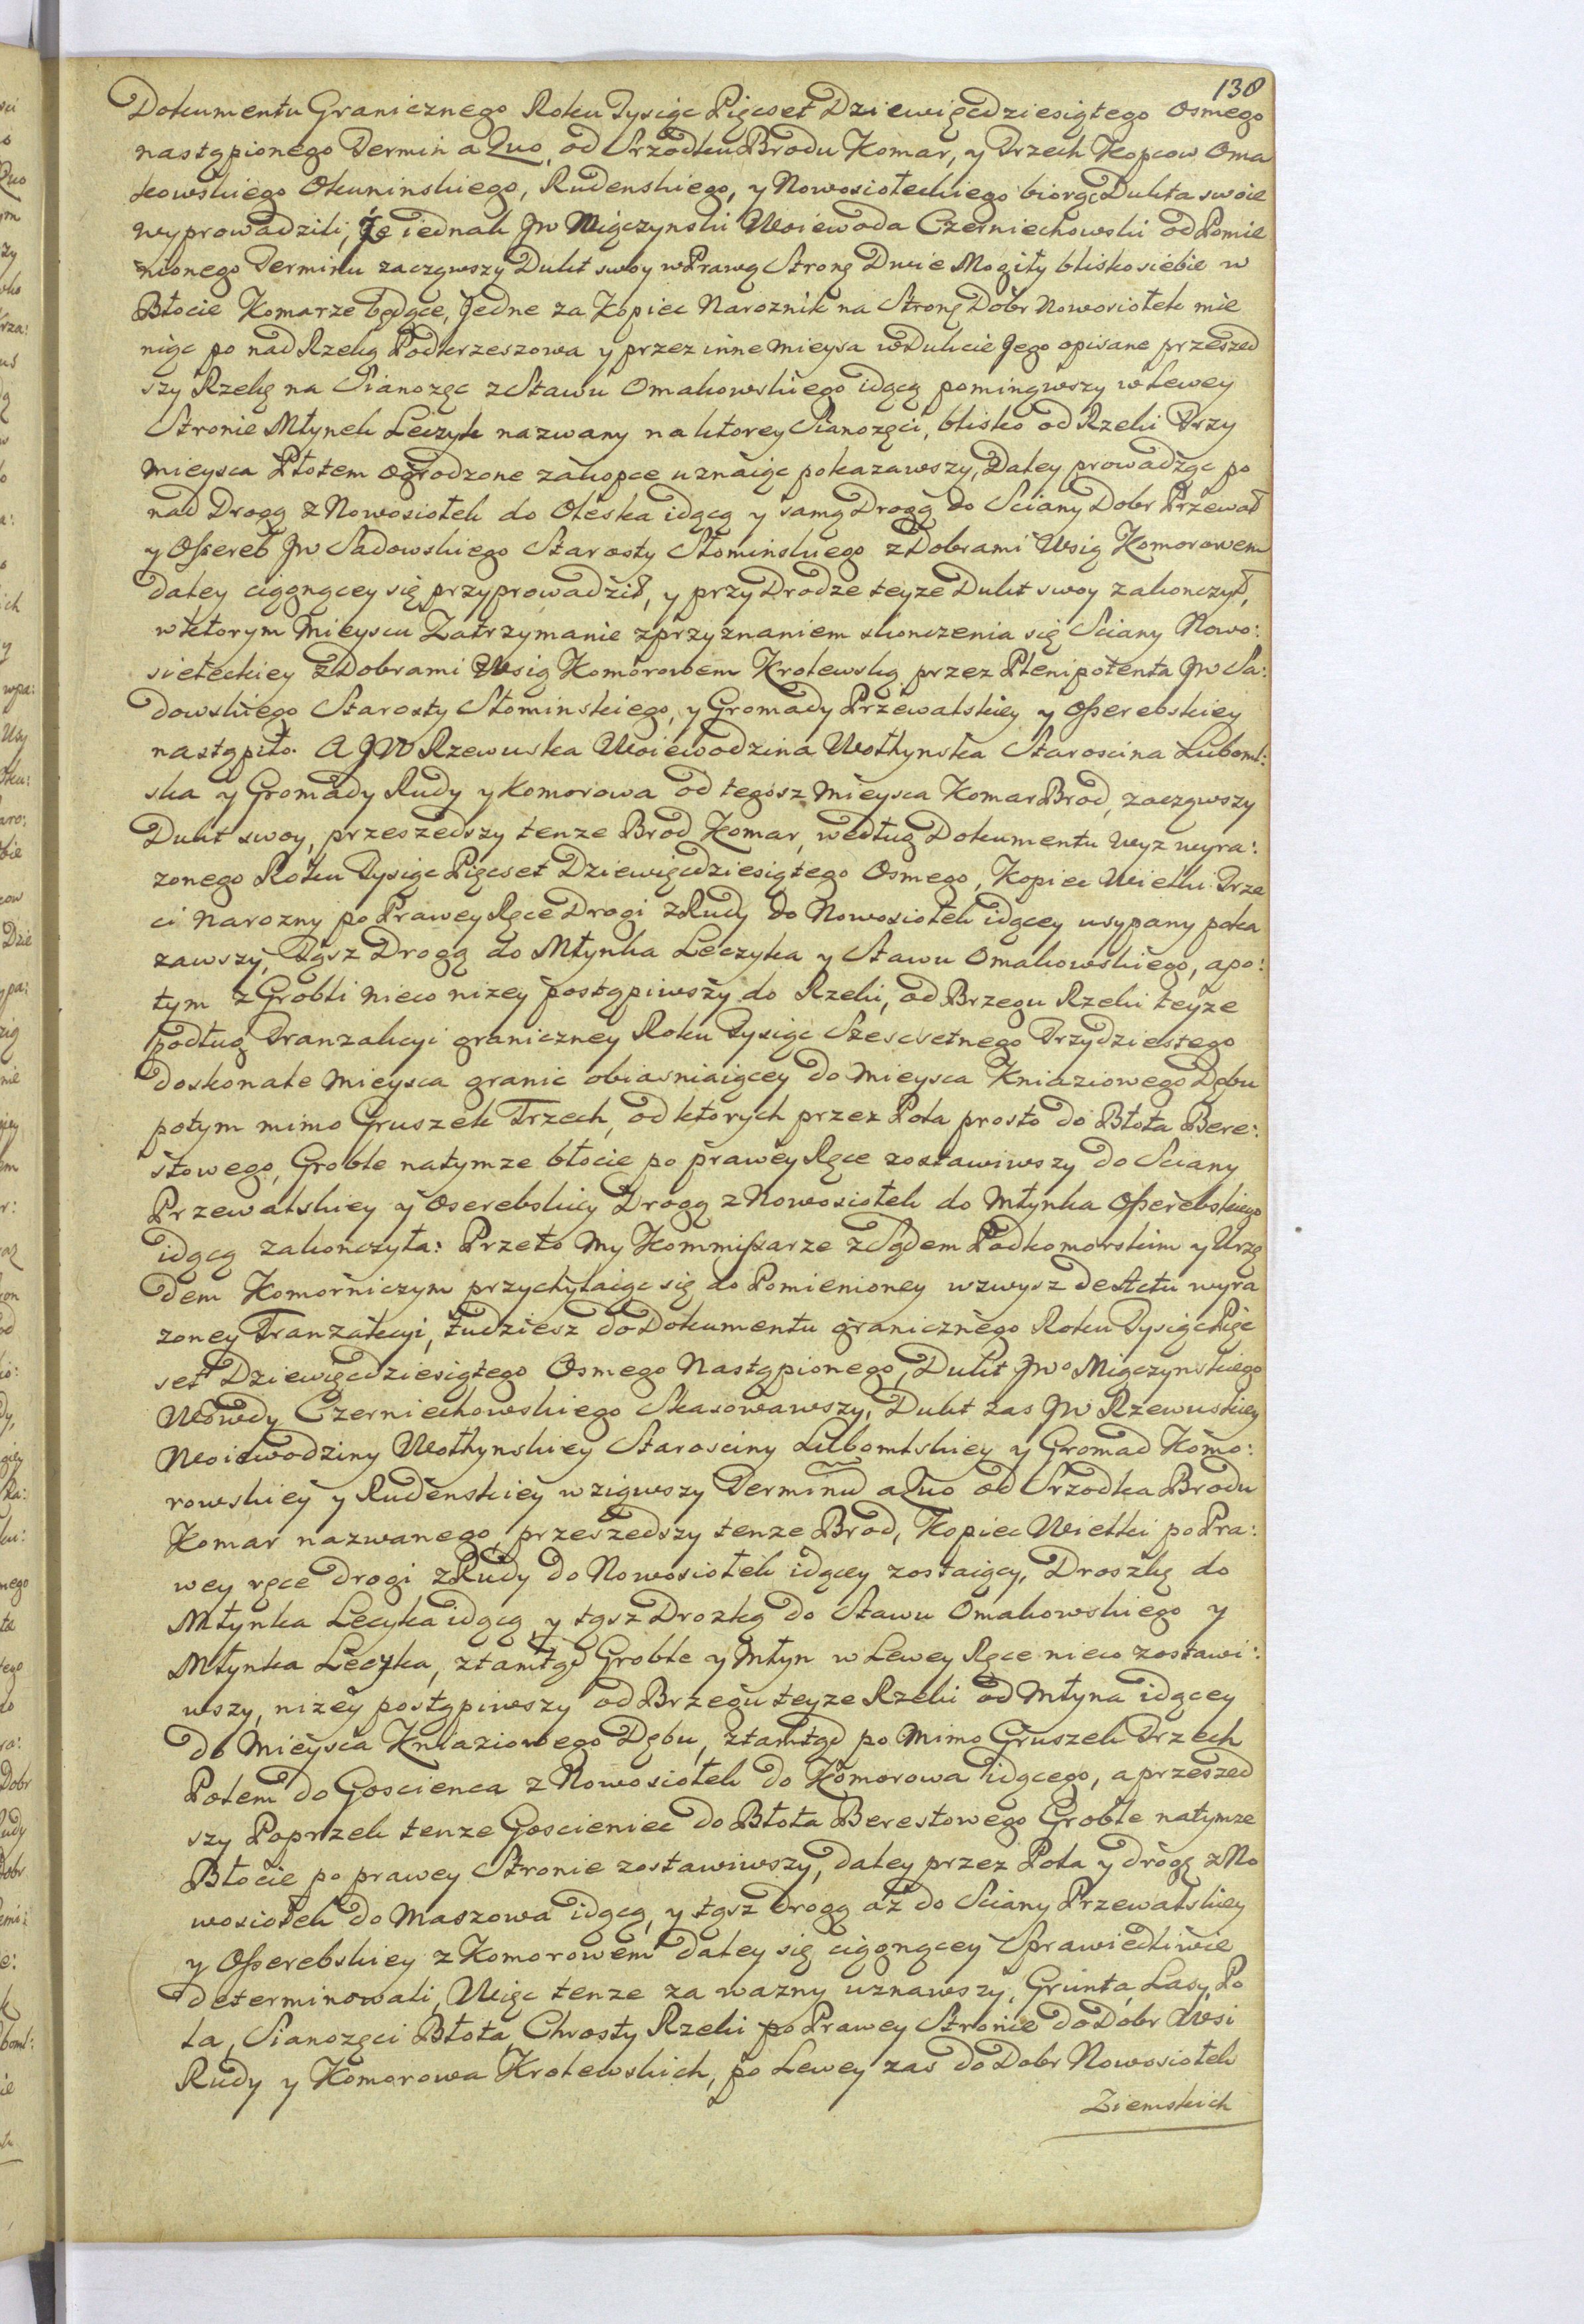 138
Dokumentu Granicznego Roku Tysiąc Pięcset Dziewięcdziesiątego Osmego
nastąpionego Termin a Quo, od Srzodku Brodu Komar, y Trzech Kopcow Oma
kowskiego Okuninskiego, Rudenskiego, y Nowosiołeckiego biorąc Dukta swoie
wyprowadzili, Że iednak JW Miączynski Woiewoda Czerniechowski od Pomie
nionego Terminu zacząwszy Dukt swoy w Prawą Stronę Dwie Mogiły blisko siebie w
Błocie Komarze będące, Jedne za Kopiec Naroznik na Stronę Dobr Nowosiołek mie
niąc po nad Rzeką Podkrzeszowa y przez inne mieysa w Dukcie Jego opisane przeszed
szy Rzekę na Sianozęc z Stawu Omakowskiego idącą pominąwszy w Lewey
Stronie Młynek Leczyk nazwany na ktorey Sianozęci, blisko od Rzeki Trzy
Mieysca Płotem ogrodzone zakopce uznaiąc pokazawszy, Daley prowadząc po
nad Drogą z Nowosiołek do Oleska idącą y samą Drogą do Sciany Dobr Przewał
y Osserеb JW Sadowskiego Starosty Słominskiego z Dobrami Wsią Komorowem
daley ciągnącey się przyprowadził, y przy Drodze teyze Dukt swoy zakonczył,
w ktorym Mieyscu Zatrzymanie z przyznaniem skonczenia się Sciany Nowo:
siełeckiey z Dobrami Wsią Komorowem Krolewską przez Plenipotenta JW Sa:
dowskiego Starosty Słominskiego, y Gromady Przewalskiey y Osserebskiey
nastąpiło. A JW Rzewuska Woiewodzina Wołhynska Staroscina Luboml:
ska y Gromady Rudy y Komorowa od tegosz Mieysca Komar Brod, zacząwszy
Dukt swoy, przeszedszy tenze Brod Komar, według Dokumentu wyz wyra:
zonego Roku Tysiąc Pięcset Dziewięcdziesiątego Osmego, Kopiec Wielki Trze
ci Narozny po Prawey Ręce Drogi z Rudy do Nowosiołek idącey usypany poka
zawszy, Tąsz Drogą do Młynka Leczyka y Stawu Omakowskiego, a po:
tym z Grobli nieco nizey postąpiwszy do Rzeki, od Brzegu Rzeki teyze
podług Tranzakcyi graniczney Roku Tysiąc Szescsetnego Trzydziestego
doskonale Mieysca granic obiasniaiącey do Mieysca Kniaziowego Dębu
potym mimo Gruszek Trzech, od ktorych przez Pola prosto do Błota Bere:
stowego, Groble natymze błocie po prawey Ręce zostawiwszy do Sciany
Przewalskiey y Oserebskiey Drogą z Nowosiołek do Młynka Osserebskiego
idącą zakonczyła: Przeto My Kommissarze z Sądem Podkomorskim y Urzę
dem Komorniczym przychylaiąc się do Pomienioney wzwysz de Actu wyra
zoney Tranzakcyi, tudziesz do Dokumentu granicznego Roku Tysiąc Pięc
set Dziewięcdziesiątego Osmego Nastąpionego, Dukt JWo Miączynskiego
Wowdy Czerniechowskiego Skasowawszy, Dukt zas JW Rzewuskiey
Woiewodziny Wołhynskiey Starosciny Lubomlskiey y Gromad Komo:
rowskiey y Rudenskiey wziąwszy Terminū a Quo od Srzodka Brodu
Komar nazwanego, przeszedszy tenze Brod, Kopiec Wielki po Pra:
wey ręce drogi z Rudy do Nowosiołek idącey zostaiący, Droszką do
Młynka Lecyka idącą, y tąsz Drozką do Stawu Omakowskiego y
Młynka Leczyka, ztamtąd Groble y Młyn w Lewey Ręce nieco zostawi:
wszy, nizey postąpiwszy od Brzegu teyze Rzeki od Młyna idącey
do Mieysca Kniaziowego Dębu, ztamtąd po Mimo Gruszek Trzech
Polem do Goscienca z Nowosiołek do Komorowa idącego, a przeszed
szy Poprzek tenze Goscieniec do Błota Berestowego Groble natymze
Błocie po prawey Stronie zostawiwszy, daley przez Pola y drogę z No
wosiołek do Maszowa idącą, y tąsz drogą aż do Sciany Przewalskiey
y Osserebskiey z Komorowem daley się ciągnącey Sprawiedliwie
determinowali, Więc tenze za wazny uznawszy, Grunta, Lasy, Po
la, Sianozęci Błota, Chrosty Rzeki po Prawey Stronie do Dobr Wsi
Rudy y Komorowa Krolewskich, po Lewey zas do Dobr Nowosiołek
Ziemskich